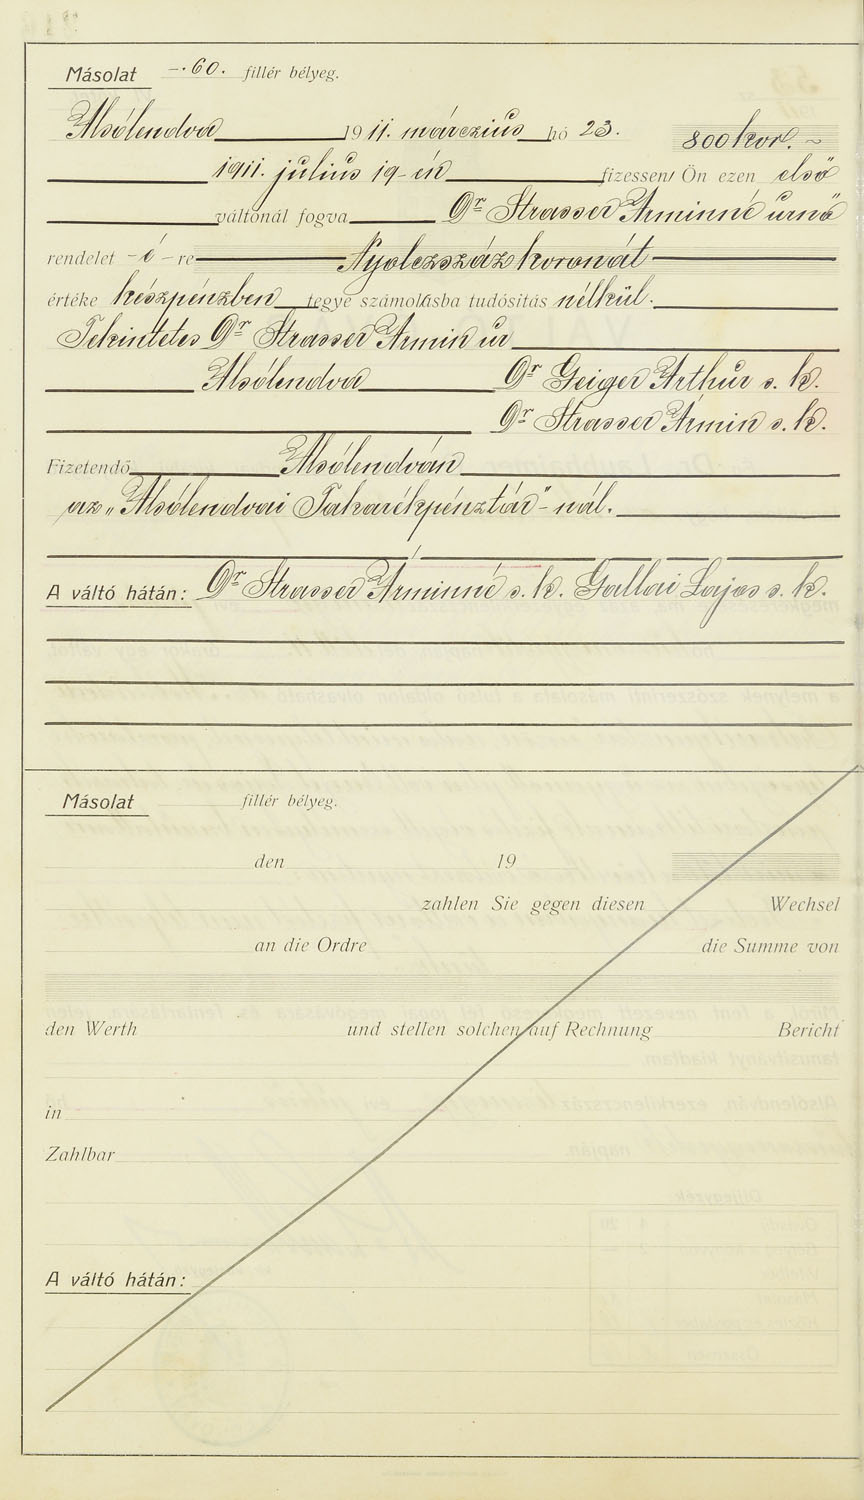 Másolat -.60. fillér bélyeg.
Alsólendva 1911. márczius hó 23. 800 kor. ~
1911. július 19-én fizessen Ön ezen első
váltónál fogva Dr Strasser Árminné úrnő
rendelet -é- re Nyolczszáz koronát
értéke készpénzben tegye számolásba tudósítás nélkül.
Tekintetes Dr Strasser Ármin úr
Alsólendva Dr Geiger Arthur s. k.
Dr Strasser Ármin s. k.
Fizetendő Alsólendván
az „Alsólendvai Takarékpénztár"-nál.
A váltó hátán: Dr Strasser Árminné s. k. Gallai Lajos s. k.
Másolat fillér bélyeg.
den 19
zahlen Sie gegen diesen Wechsel
an die Ordre die Summe von
den Werth und stellen solchen auf Rechnung Bericht
in
Zahlbar
A váltó hátán: